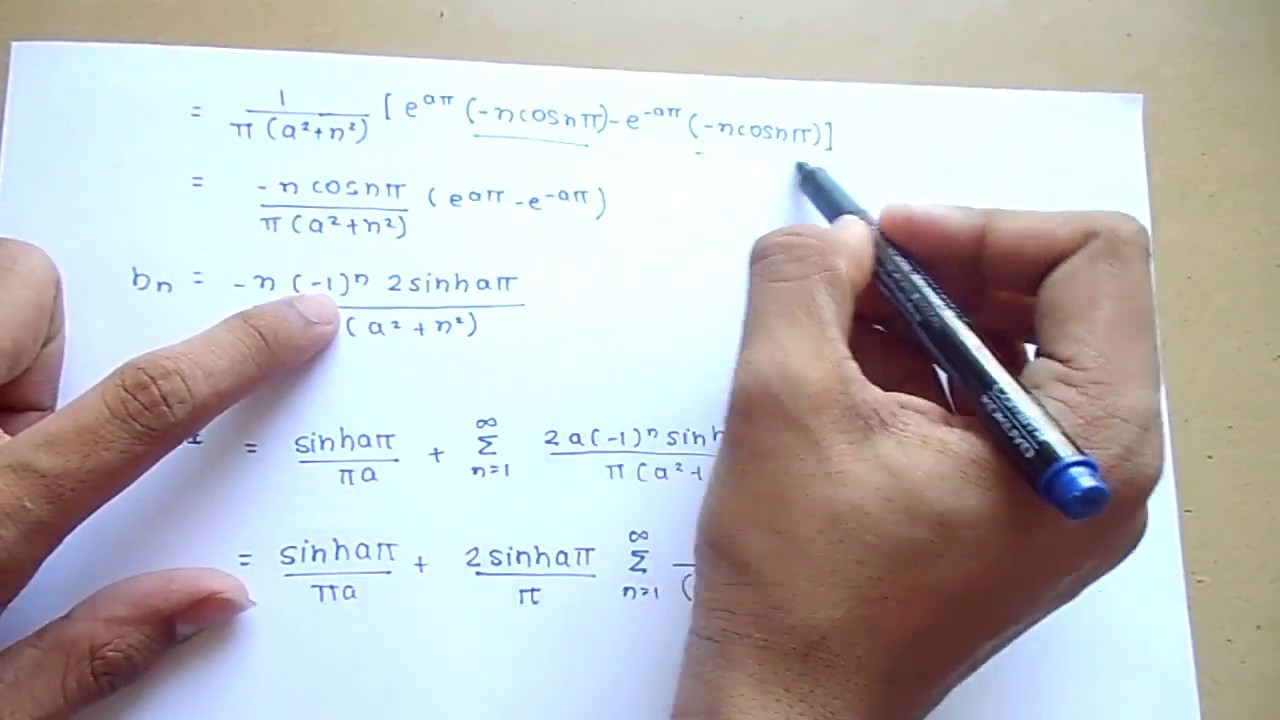 = 1/π(a²+n²) [e^aπ (-ncosnπ)-e^-aπ (-ncosnπ)]
= -n cosnπ/π(a²+n²) (e^aπ -e^-aπ)
bn = -n (-1)ⁿ 2sinhaπ/(a²+n²)
= sinhaπ/πa + ∞Σn=1 2a(-1)ⁿ sinh/π(a²+
= sinhaπ/πa + 2sinhaπ/π ∞Σn=1 (